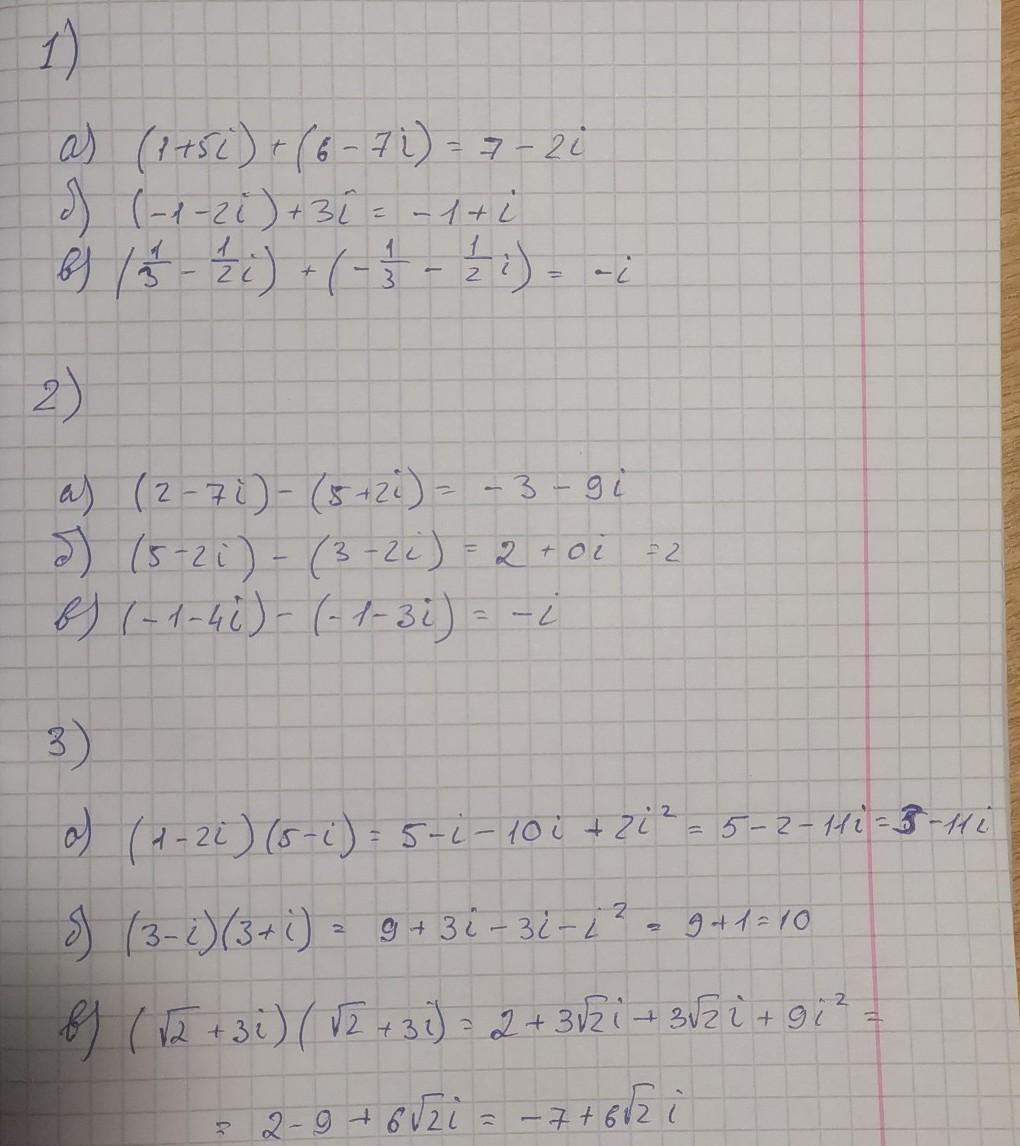 1)
а) (1+5i)+(6-7i)=7-2i
б) (-1-2i)+3i=-1+i
в) (1/3-1/2i)+(-1/3-1/2i)=-i
2)
а) (2-7i)-(5+2i)=-3-9i
б) (5-2i)-(3-2i)=2+0i=2
в) (-1-4i)-(-1-3i)=-i
3)
а) (1-2i)(5-i)=5-i-10i+2i²=5-2-11i=3-11i
б) (3-i)(3+i)=9+3i-3i-i²=9+1=10
в) (√2+3i)(√2+3i)=2+3√2i+3√2i+9i²=
=2-9+6√2i=-7+6√2i